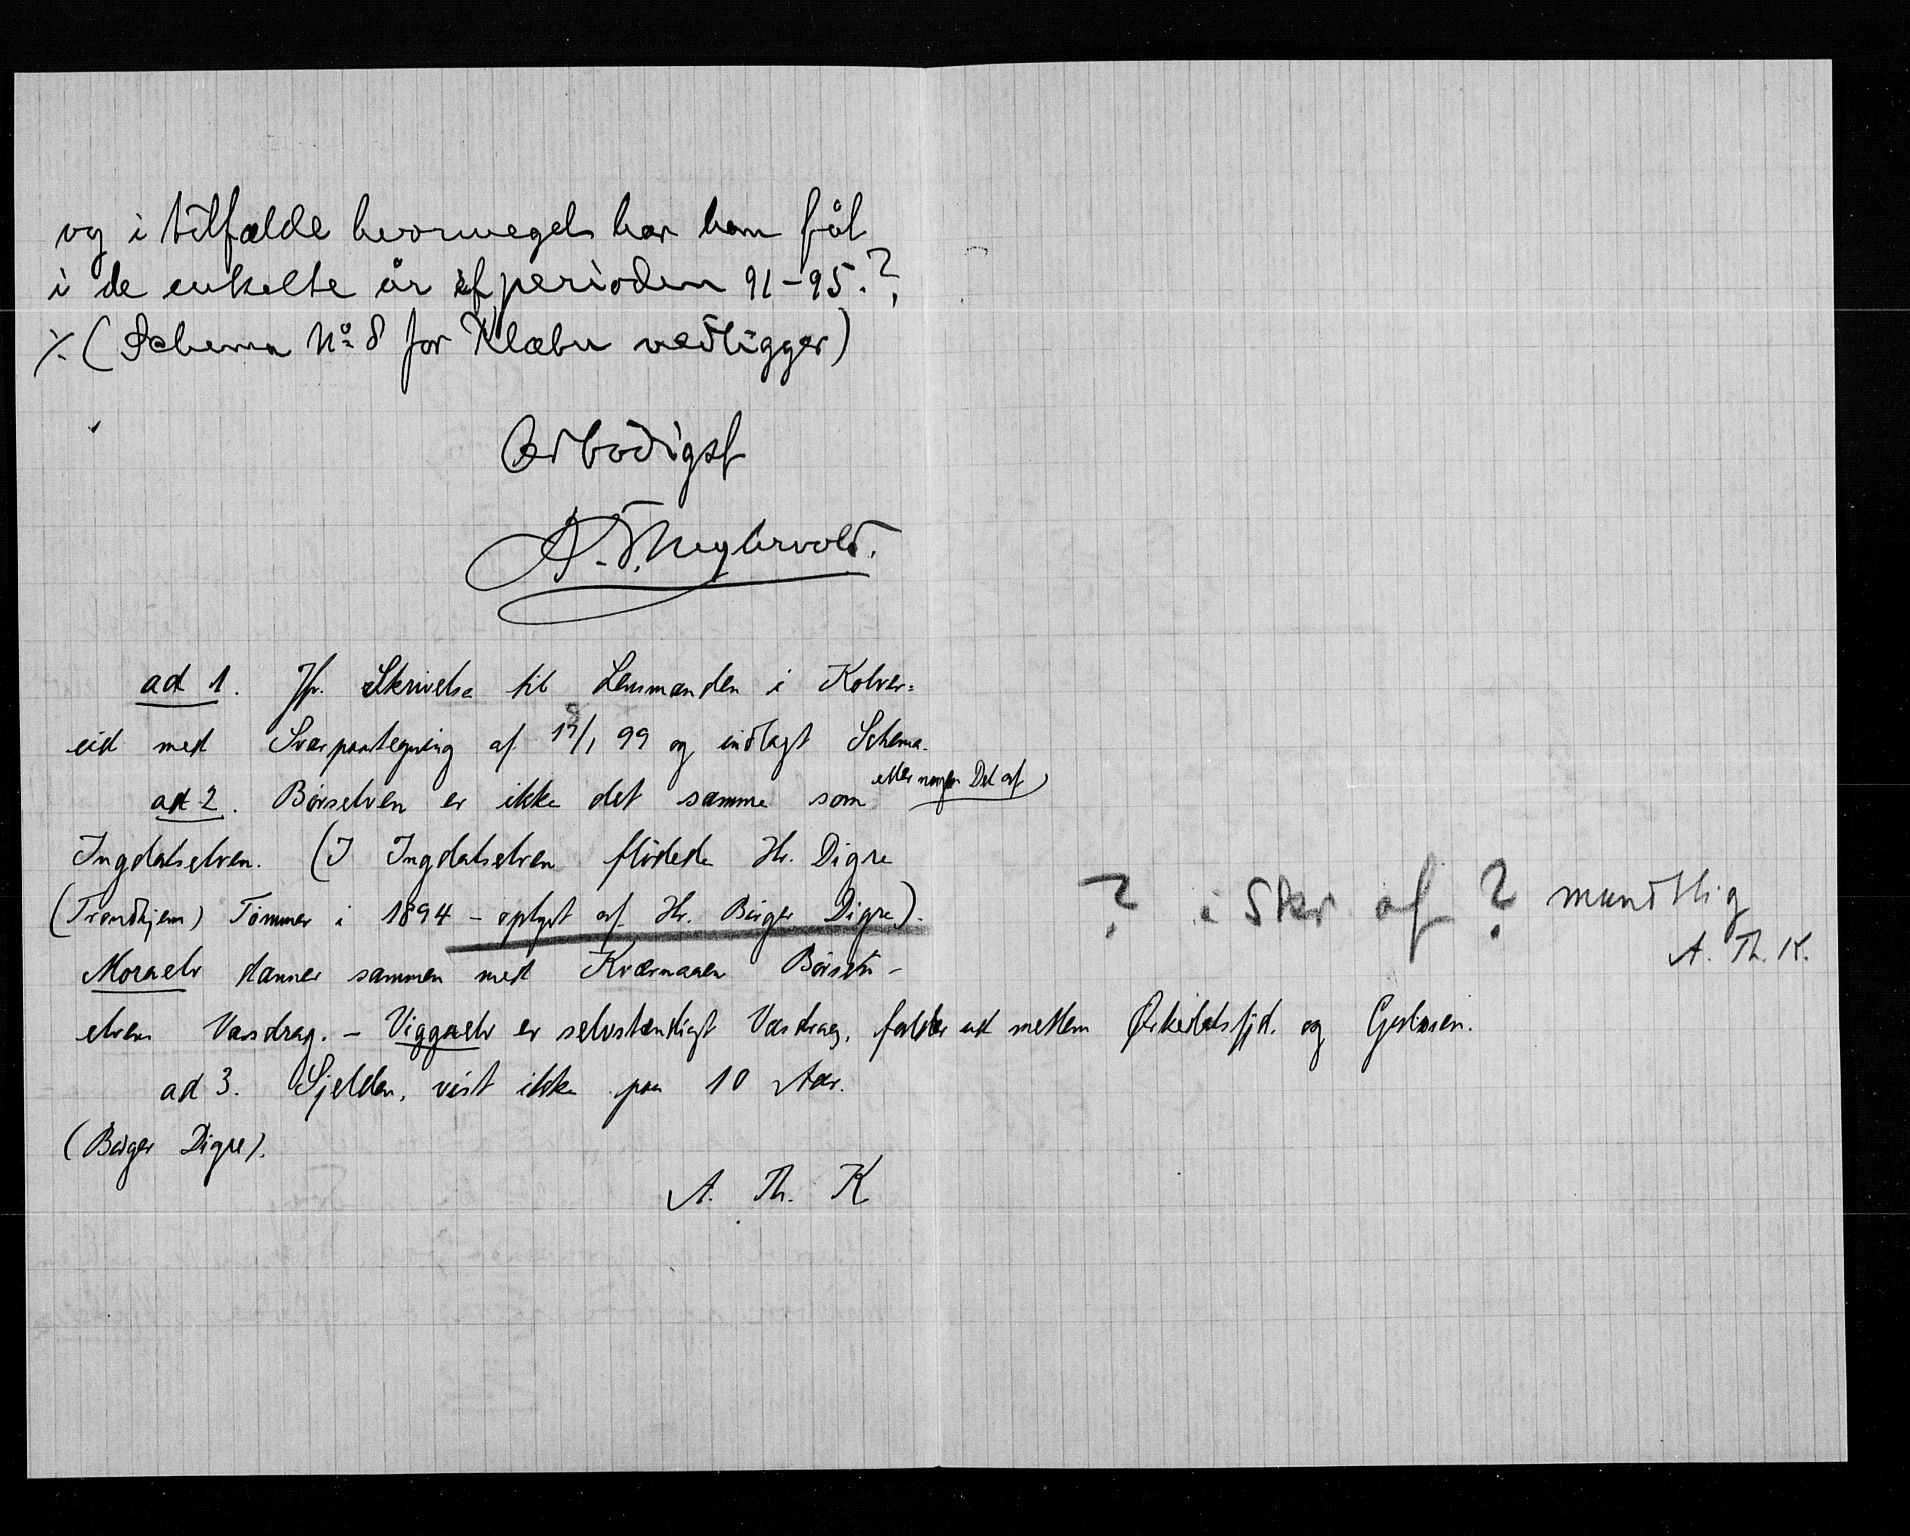 og i tilfælde hvormeget har han fåt
i de enkelte år af perioden 91-95.?
⁒ (Schema No 8 for Klæbu vedligger)
Ærbødigst
ad 1. Jfr. Skrivelse til Lensmanden i Kolver=
eid med Svarpaategning af 17/1 99 og indlagt Schema.
ad 2. Børselven er ikke det samme som eller nogen Del af
Ingdalselven. (I Ingdalselven flødede Hr. Digre
(Trondhjem) Tømmer i 1894 - oplyst af Hr. Birger Digre).
? i Skr af ? mundtlig
A. Th. K.
Moraelv danner sammen med Kværnaaen Børsel-
elvens Vasdrag. - Viggaelv er selvstændigt Vasdrag, falder ud mellem Orkedalsfjd. og Gulosen.
ad 3. Sjelden, vist ikke paa 10 Aar.
(Birger Digre).
A. Th. K